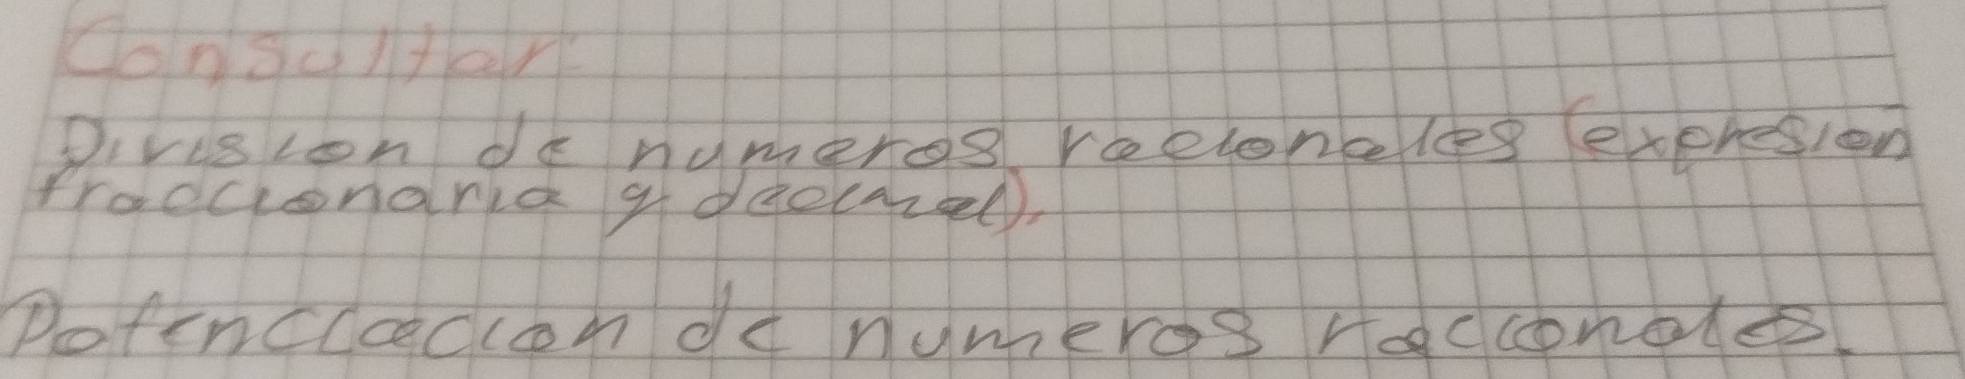 Consultar
Division de numeros racionales (expresion
fraccionaria y decimal).
Potenciacion de numeros racionales.